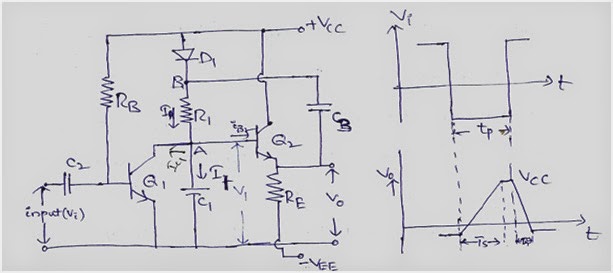 +VCC
D1
B
RB
R1
I1
CB
iB2
Q2
C2
A
Ic1
I1
Q1
C1
V1
RE
Vo
input(Vi)
-VEE
Vi
t
tp
Vo
VCC
Ts
t